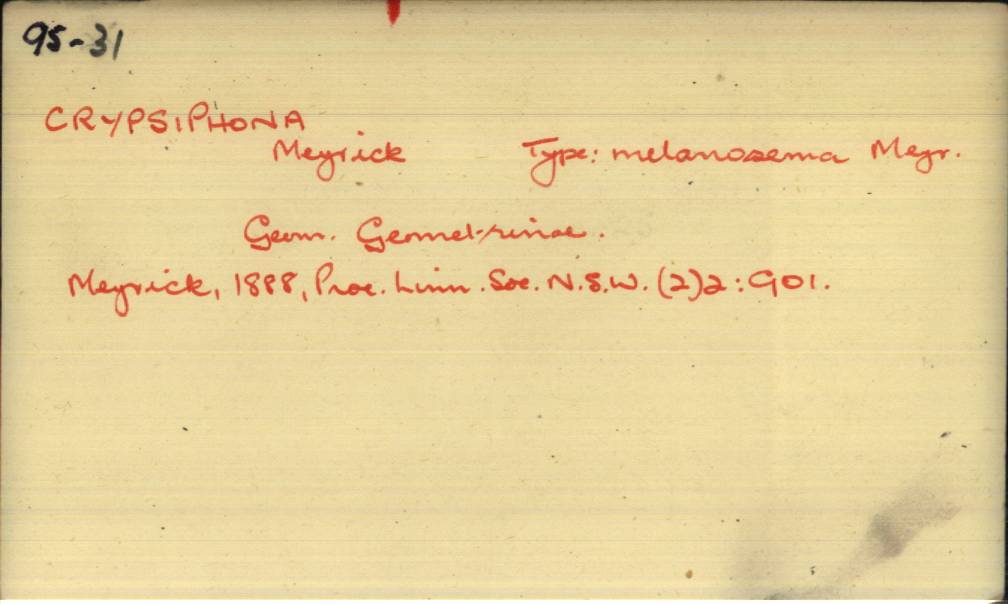 95-31
CRYPSIPHONA
Meyrick Type: melanosema Meyr.
Geom. Geometrinae.
Meyrick, 1888, Proc. Linn. Soc. N.S.W. (2)2:901.